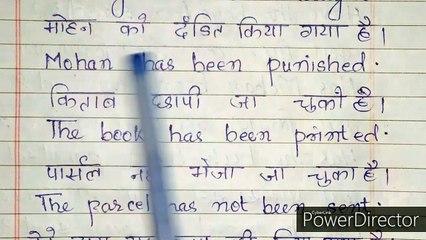 मोहन को दंडित किया गया है।
Mohan has been punished.
किताब छापी जा चुकी है।
The book has been printed.
पार्सल नहीं भेजा जा चुका है।
The parcel has not been sent.
CyberLink
PowerDirector